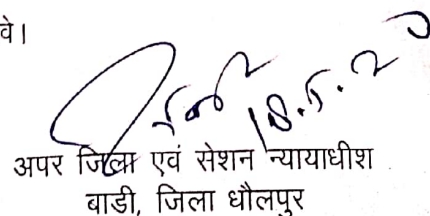 वे।
18.5.20
अपर जिला एवं सेशन न्यायाधीश
बाडी, जिला धौलपुर